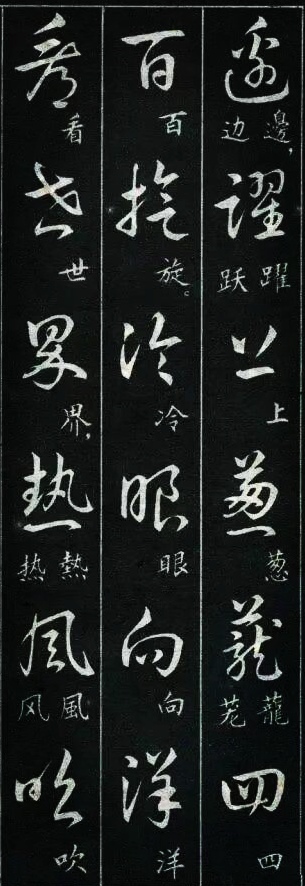 邊躍上葱蘢四
邊,躍上葱蘢四
边跃茏
百旋冷眼向洋
百旋。冷眼向洋
看世界熱風吹
看世界,熱風吹
热风